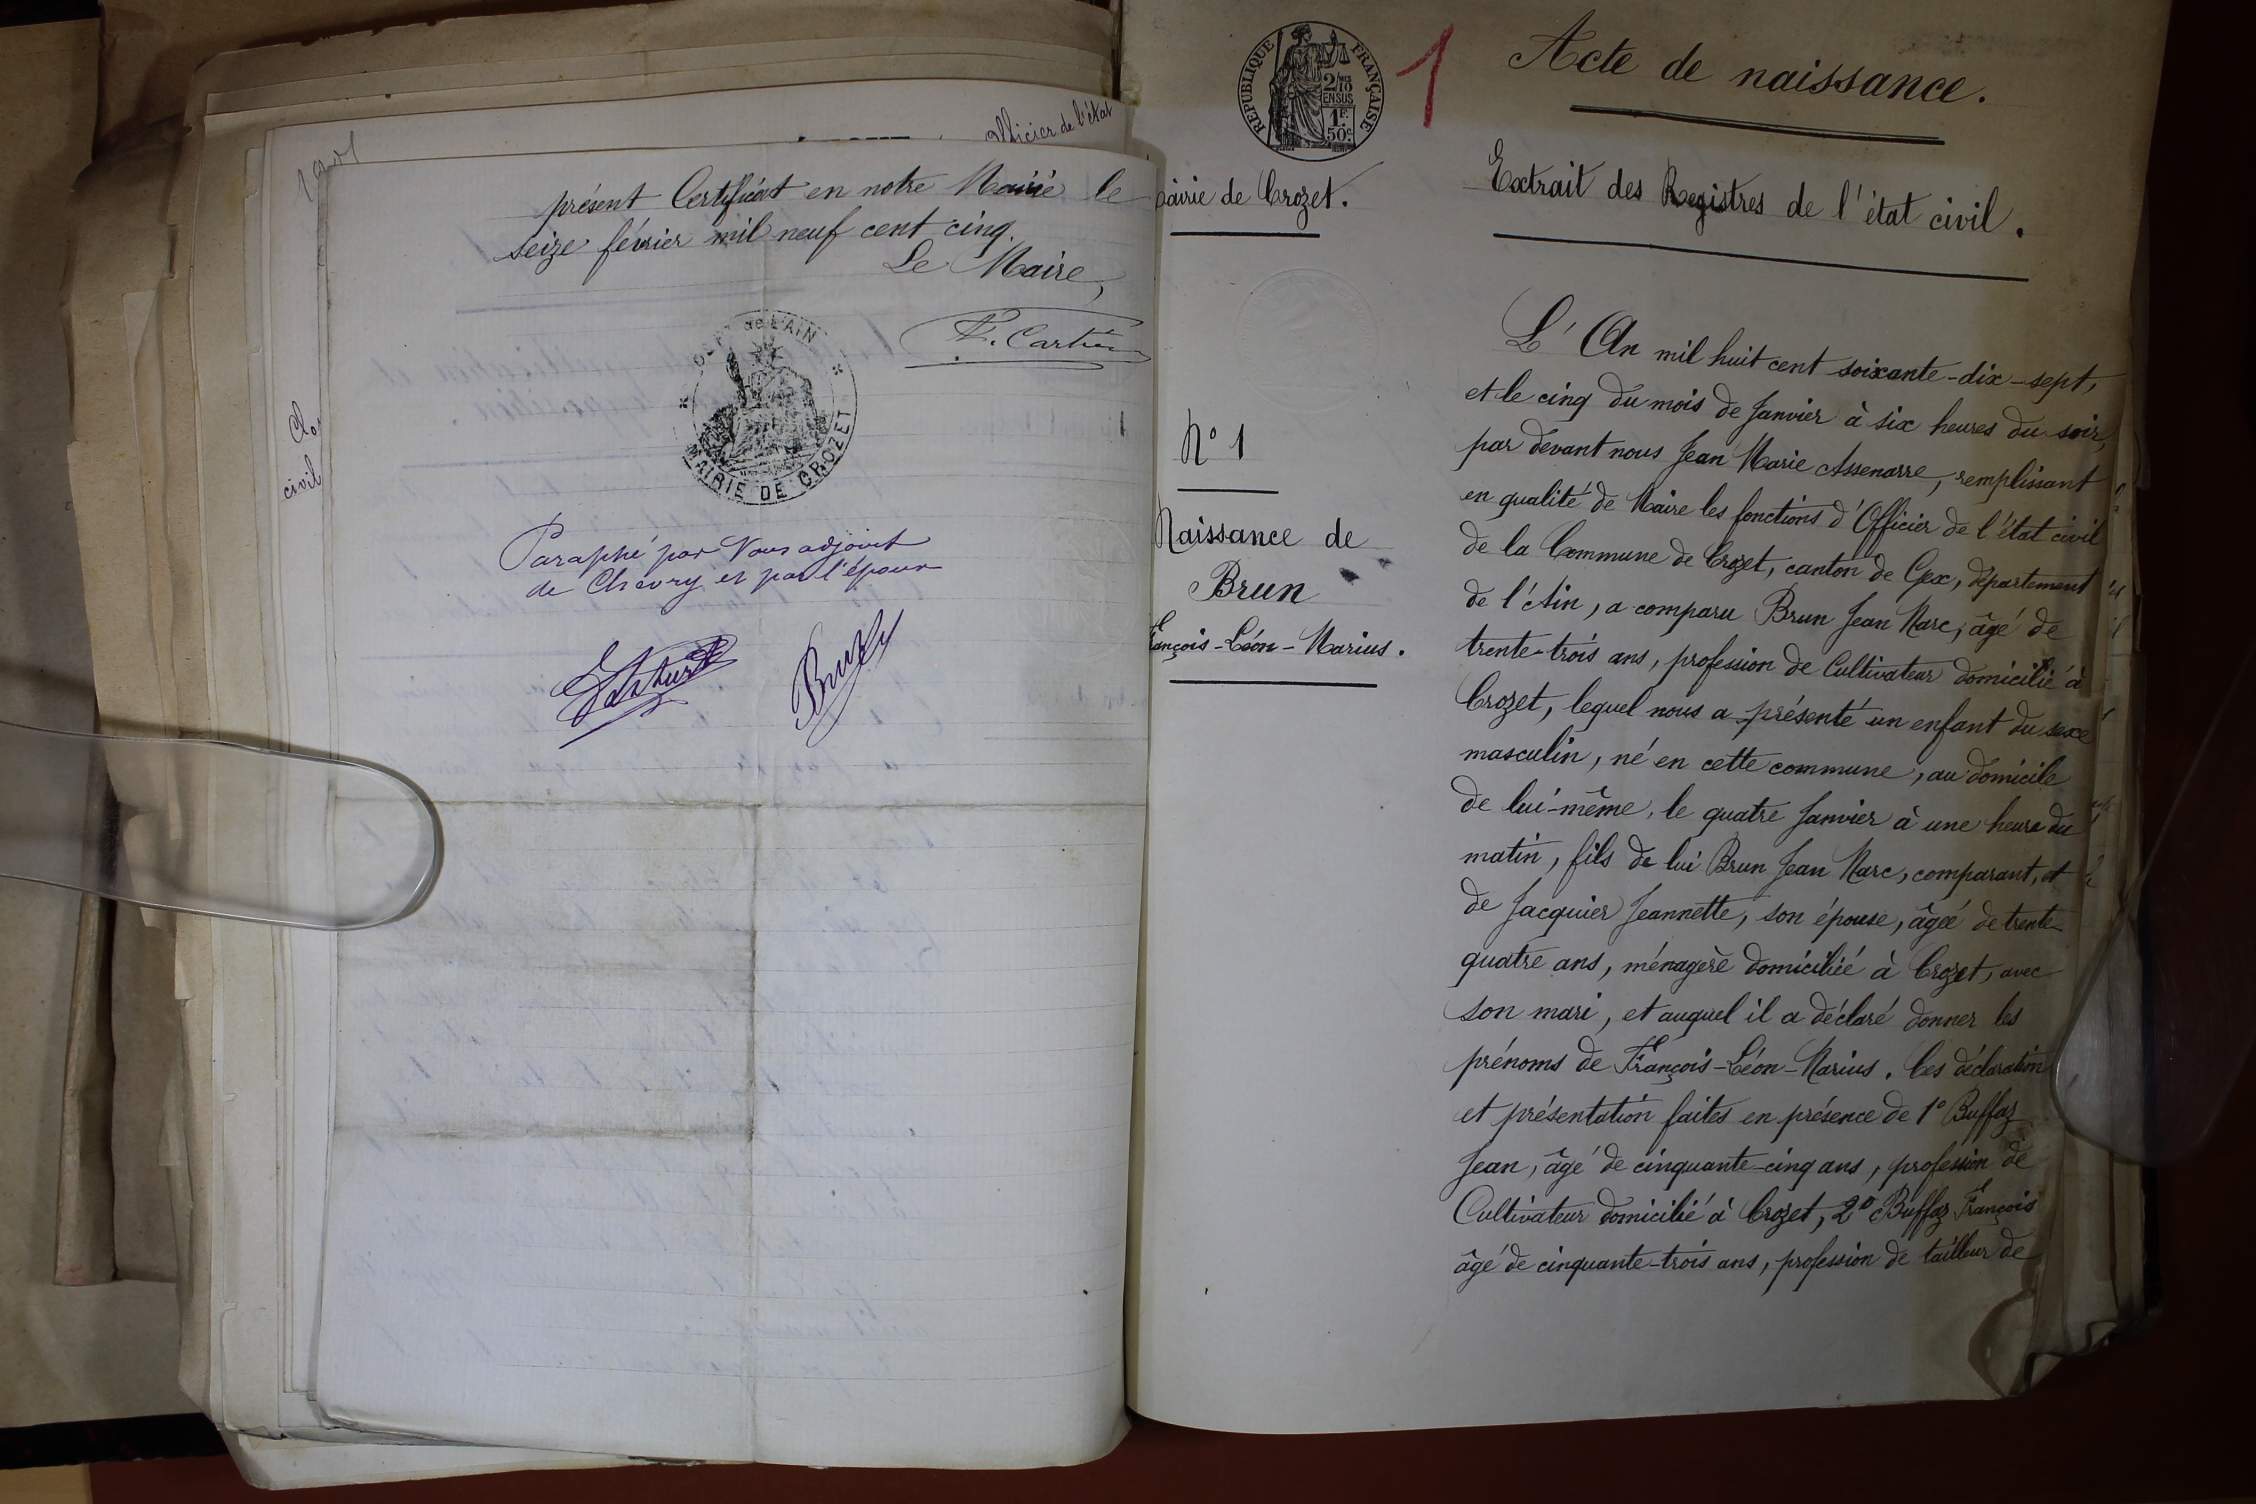 officier de l'état
civil
présent Certificat en notre Mairie le
seize février mil neuf cent cinq.
Le Maire,
F. Cartier
DEPT de L'AIN
MAIRIE DE CROZET
Paraphé par Nous adjoint
de Chevry et par l'époux
Brun
REPUBLIQUE FRANÇAISE
2/10 EN SUS
1F. 50c.
1
Mairie de Crozet.
N° 1
Naissance de
Brun
François-Léon-Marius.
Acte de naissance.
Extrait des Registres de l'état civil.
L'An mil huit cent soixante-dix-sept,
et le cinq du mois de Janvier à six heures du soir,
par devant nous Jean Marie Assenarre, remplissant
en qualité de Maire les fonctions d'Officier de l'état civil
de la Commune de Crozet, canton de Gex, département
de l'Ain, a comparu Brun Jean Marc, âgé de
trente-trois ans, profession de Cultivateur domicilié à
Crozet, lequel nous a présenté un enfant du sexe
masculin, né en cette commune, au domicile
de lui-même, le quatre Janvier à une heure du
matin, fils de lui Brun Jean Marc, comparant, et
de Jacquier Jeannette, son épouse, âgée de trente-
quatre ans, ménagère domiciliée à Crozet, avec
son mari, et auquel il a déclaré donner les
prénoms de François-Léon-Marius. Ces déclaration
et présentation faites en présence de 1° Buffaz
Jean, âgé de cinquante-cinq ans, profession de
Cultivateur domicilié à Crozet, 2° Buffaz François
âgé de cinquante-trois ans, profession de tailleur de